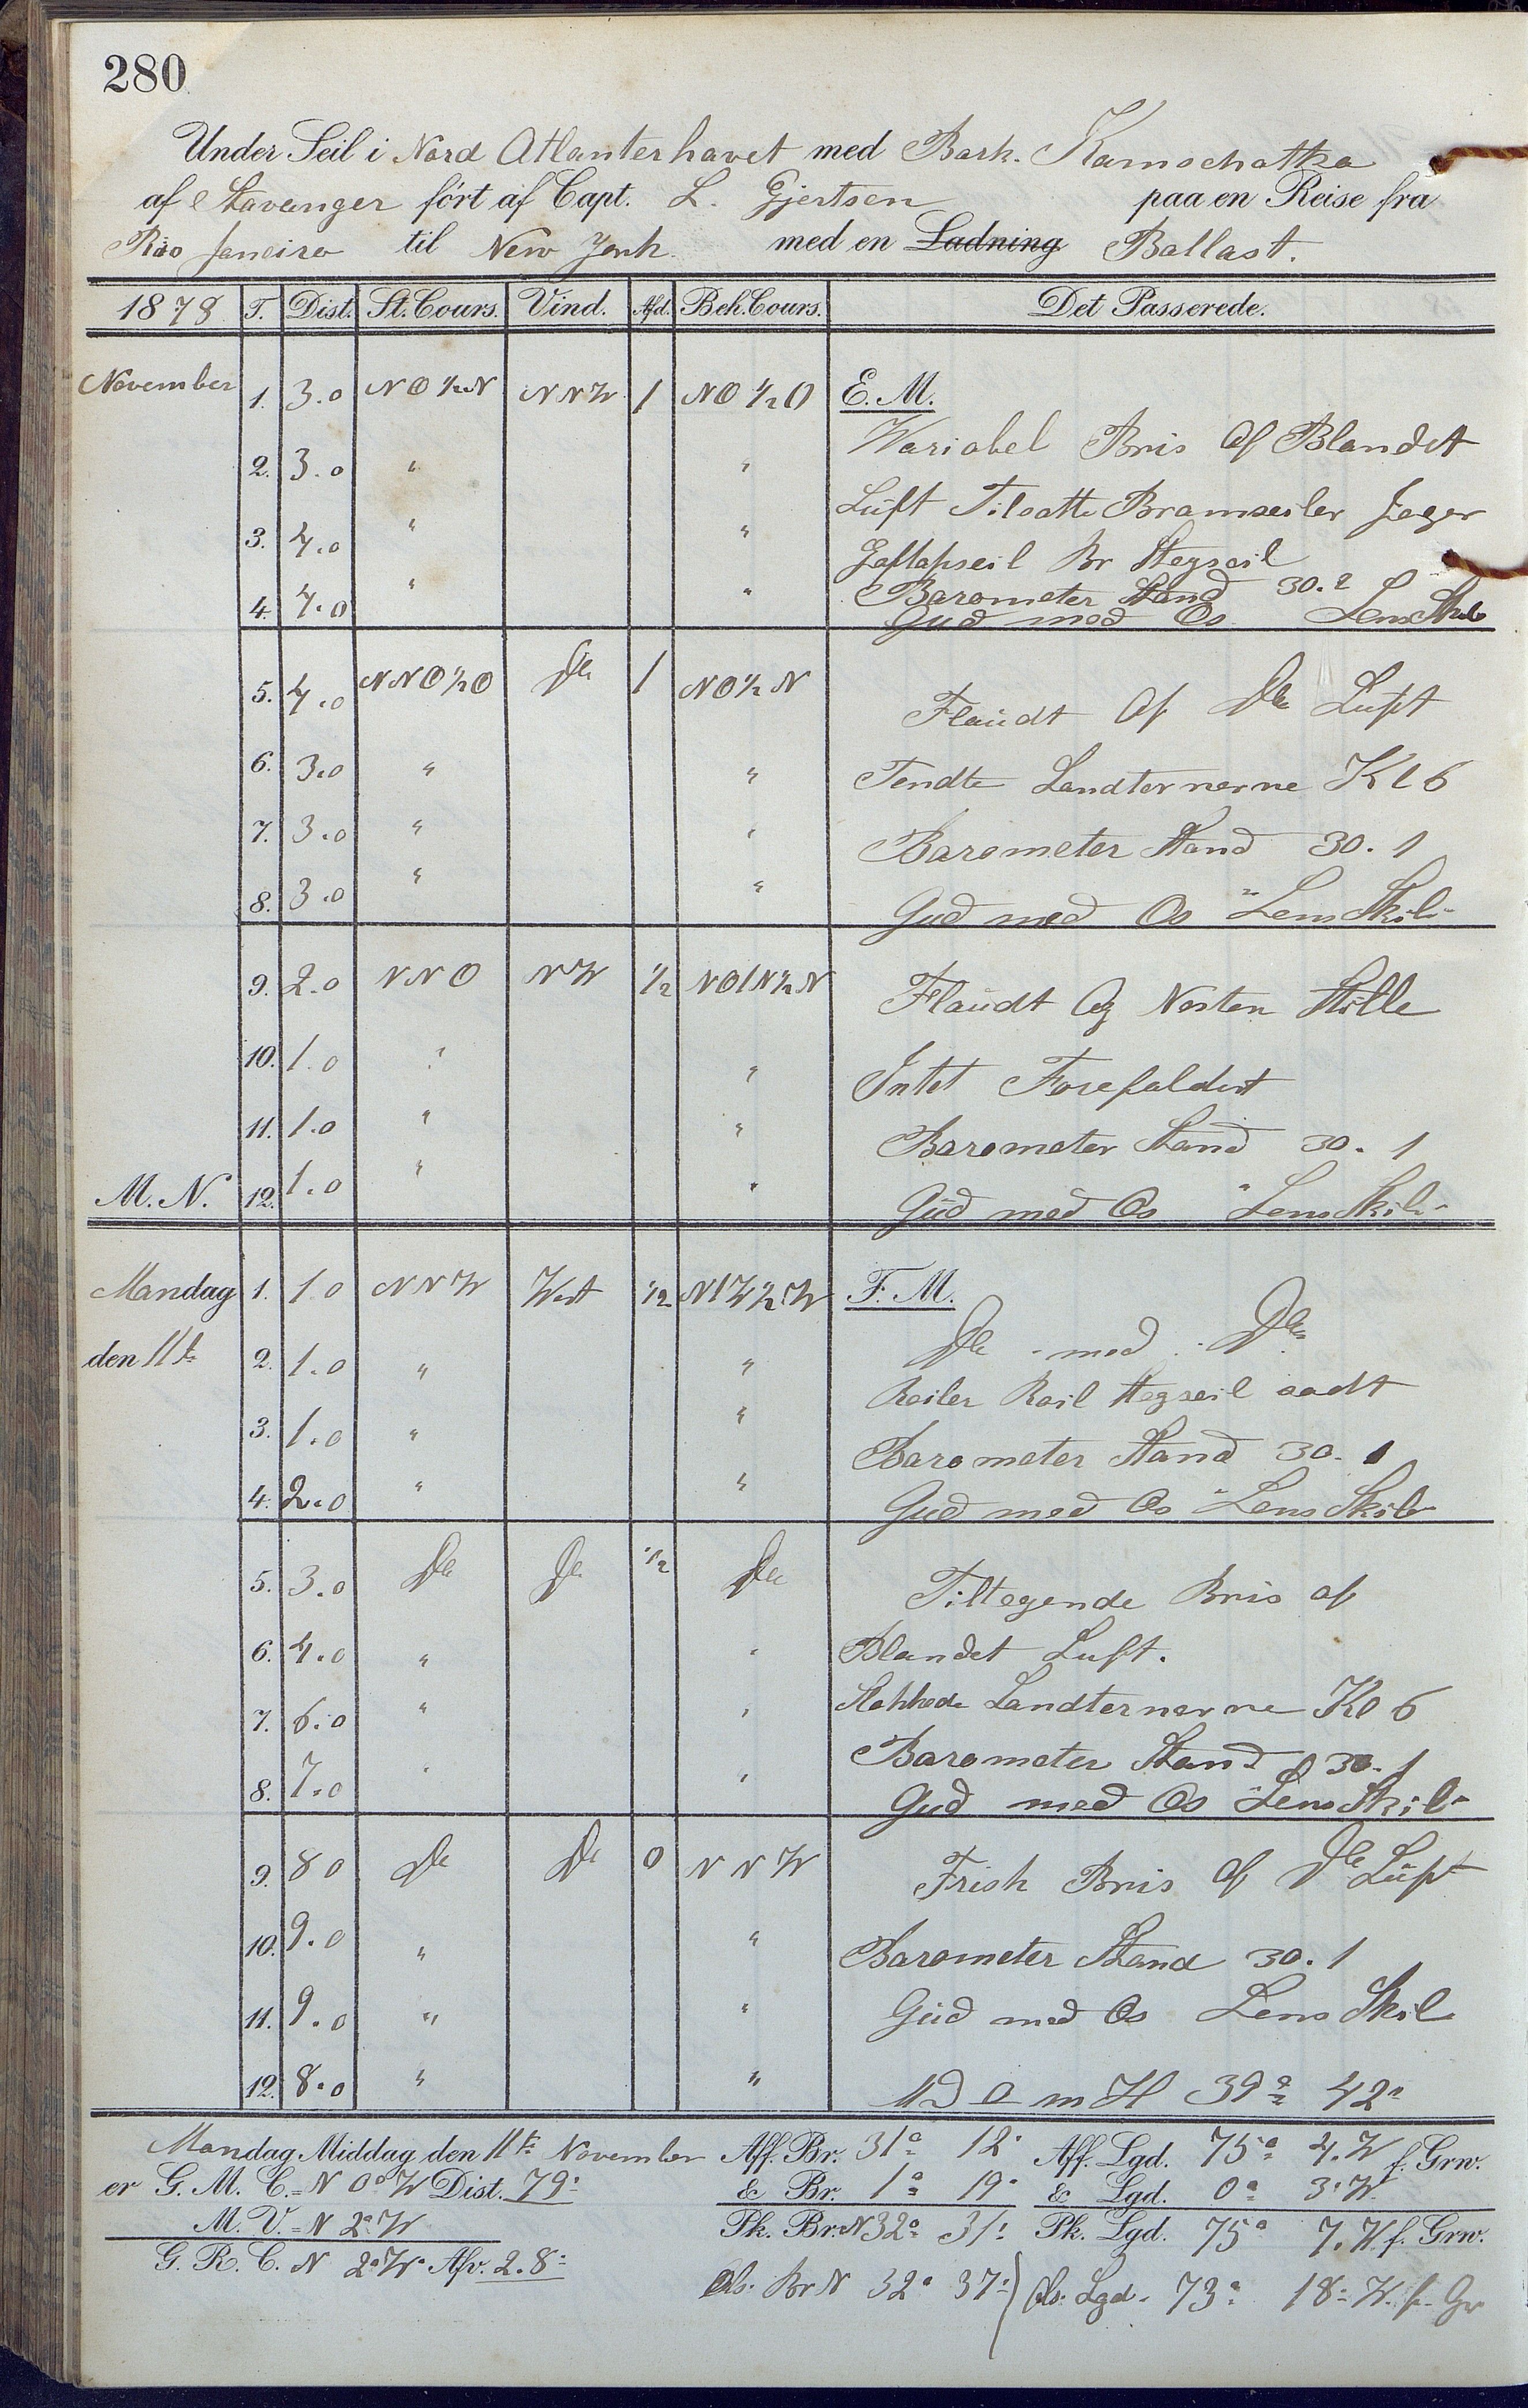 280
Under Seil i Nord Atlanterhavet med Bark. Kamschatka
af Stavanger ført af Capt. L. Gjertsen paa en Reise fra
Rio Janeiro til New York. med en Ladning Ballast.
1878 T. Dist. St. Cours. Vind. Afd. Beh. Cours. Det Passerede.
November 1. 3.0 NO½N NNW 1 NO½O E. M.
Wariabel Bris Af Blandet
2. 3.0 " "
Luft Tilsatte Bramseiler Jager
3. 4.0 " "
Gaflapseil Br Stagseil
Barometer Stand 30.2
4. 4.0 " "
Gud med Os Lens Skib
5. 4.0 NNO½O Do 1 NO½N
Flaudt Af Do Luft
6. 3.0 " " Tendte Landternerne Kl 6
7. 3.0 " " Barometer Stand 30.1
8. 3.0 " " Gud med Os Lens Skib
9. 2.0 NNO NW ½ NOlN½N Flaudt Og Nesten Stille
10. 1.0 " " Intet Forefaldent
11. 1.0 " " Barometer Stand 30.1
M. N. 12. 1.0 " " Gud med Os Lens Skib
Mandag 1. 1.0 NNW West ½ NlW½W F. M.
Do med Do
den 11te 2. 1.0 " "
Roiler Roil Stagseil
3. 1.0 " " Barometer Stand 30.1
4. 2.0 " " Gud med Os Lens Skib
5. 3.0 Do Do ½ Do Tiltagende Bris af
6. 4.0 " " Blandet Luft.
7. 6.0 " " Slokkede Landternerne Kl 6
Barometer Stand 30.1
8. 7.0 " " Gud med Os Lens Skib
9. 8.0 Do Do 0 NNW Frisk Bris Af Do Luft
10. 9.0 " " Barometer Stand 30.1
11. 9.0 " " Gud med Os Lens Skib
12. 8.0 " " m H 39° 42'
Mandag Middag den 11te November Aff. Br. 31° 12' Aff. Lgd. 75° 4' W f. Grw.
er G. M. C. = N 0° W Dist. 79' & Br. 1° 19' & Lgd. 0° 3' W
M. V. = N 2° W Pk. Br. N 32° 31' Pk. Lgd. 75° 7' W f. Grw.
G. R. C. N 2° W Afv. 2.8'
Ob. Br N 32° 37' Ob. Lgd. 73° 18' W. f. Gr